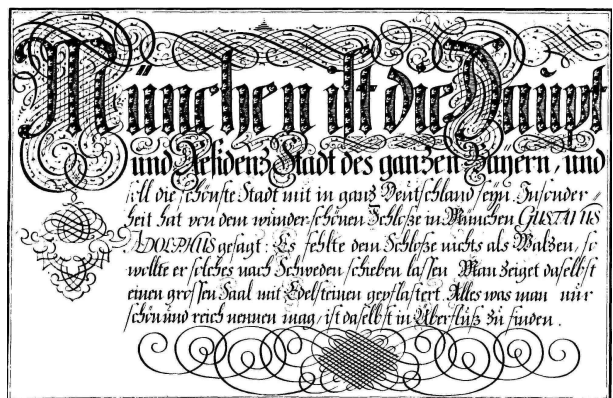 München ist die Haupt
und Residenz Stadt des ganzen Bayern, und
soll die schönste Stadt mit in ganz Deutschland seyn. Insonder⸗
heit hat von dem wunder⸗schönen Schloße in München GUSTAVUS
ADOLPHUS gesagt: Es fehlte dem Schloße nichts als Walzen, so
wollte er solches nach Schweden schieben lassen. Man zeiget daselbst
einen grossen Saal mit Edelsteinen gepflastert. Alles was man nur
schön und reich nennen mag, ist daselbst in Überfluß zu finden.